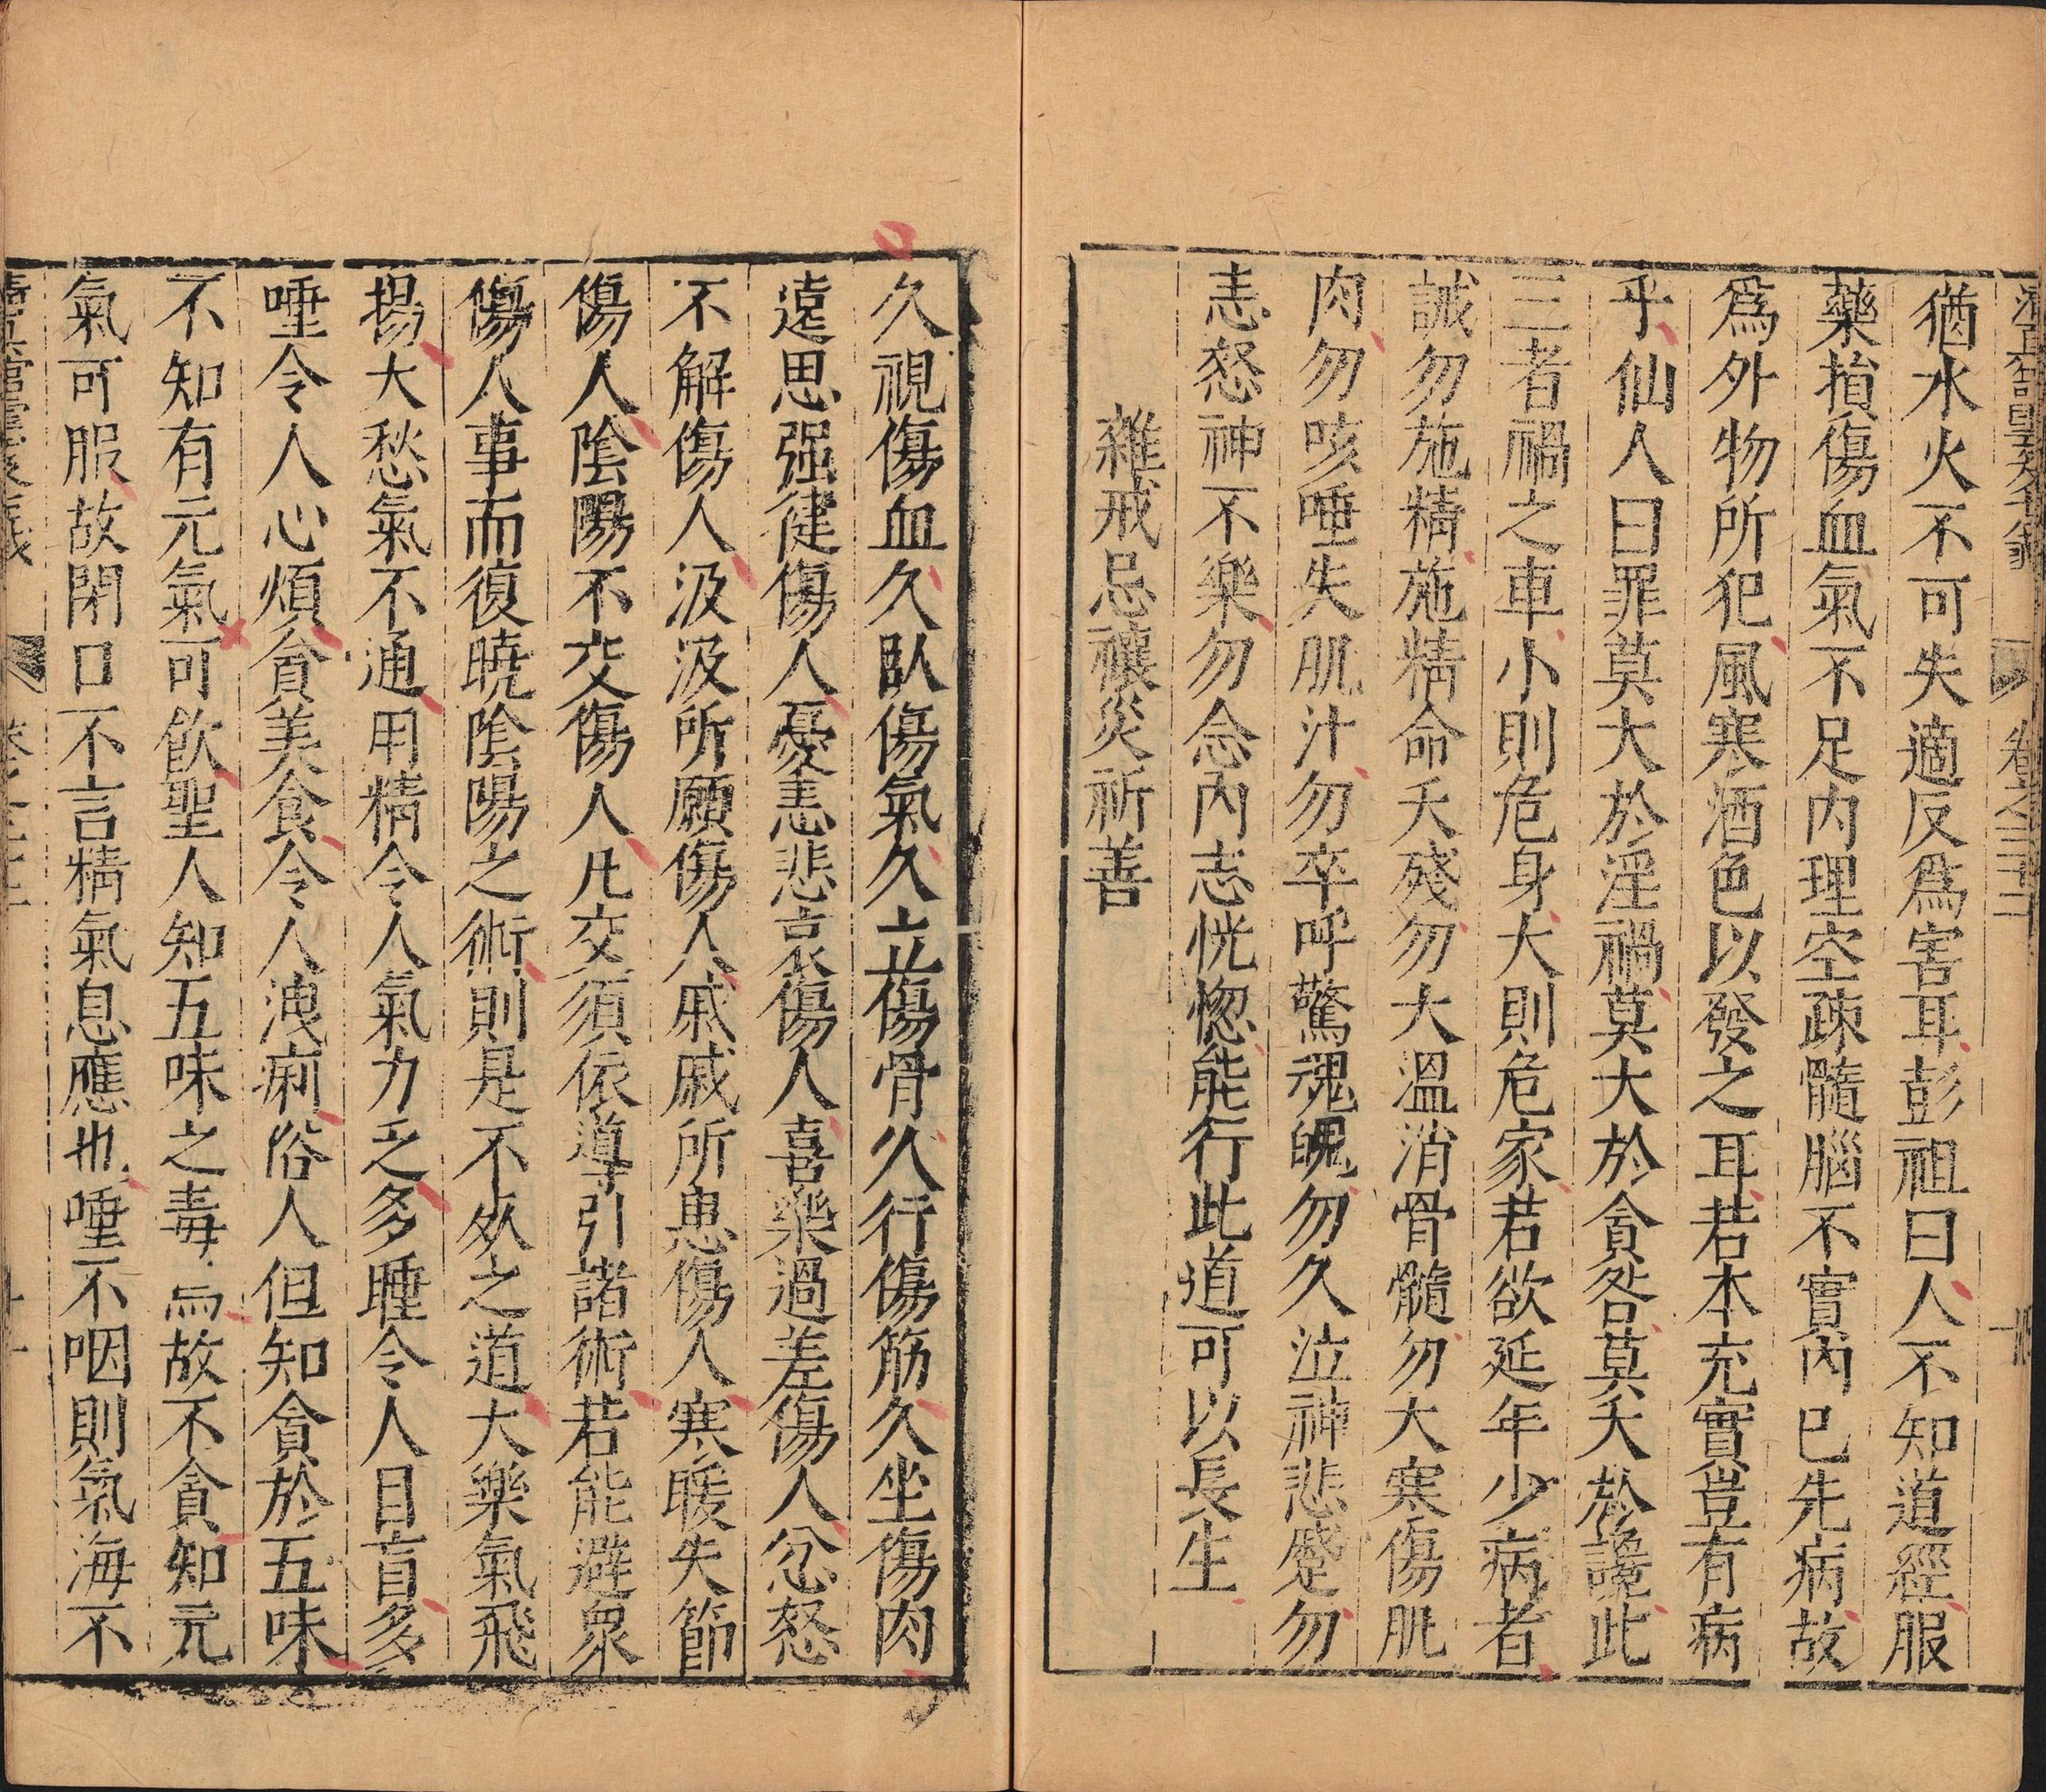 卷之三十三
猶水火不可失適反爲害耳彭祖曰人不知道經服
藥損傷血氣不足内理空疎髓腦不實內已先病故
爲外物所犯風寒酒色以發之耳若本充實豈有病
乎仙人曰罪莫大於淫禍莫大於貪咎莫大於讒此
三者禍之車小則危身大則危家若欲延年少病者
誡勿施精施精命夭殘勿大溫消骨髓勿大寒傷肌
肉勿咳唾失肌汁勿卒呼驚魂魄勿久泣神悲蹙勿
恚怒神不樂勿念內志恍惚能行此道可以長生
雜戒忌禳災祈善
久視傷血久臥傷氣久立傷骨久行傷筋久坐傷肉
遠思强健傷人憂恚悲哀傷人喜樂過差傷人忿怒
不解傷人汲汲所願傷人戚戚所患傷人寒暖失節
傷人陰陽不交傷人凡交須依導引諸術若能避衆
傷人事而復曉陰陽之術則是不死之道大樂氣飛
揚大愁氣不通用精令人氣力乏多睡令人目盲多
唾令人心煩貪美食令人洩痢俗人但知貪於五味
不知有元氣可飲聖人知五味之毒焉故不貪知元
氣可服故閉口不言精氣息應也唾不咽則氣海不